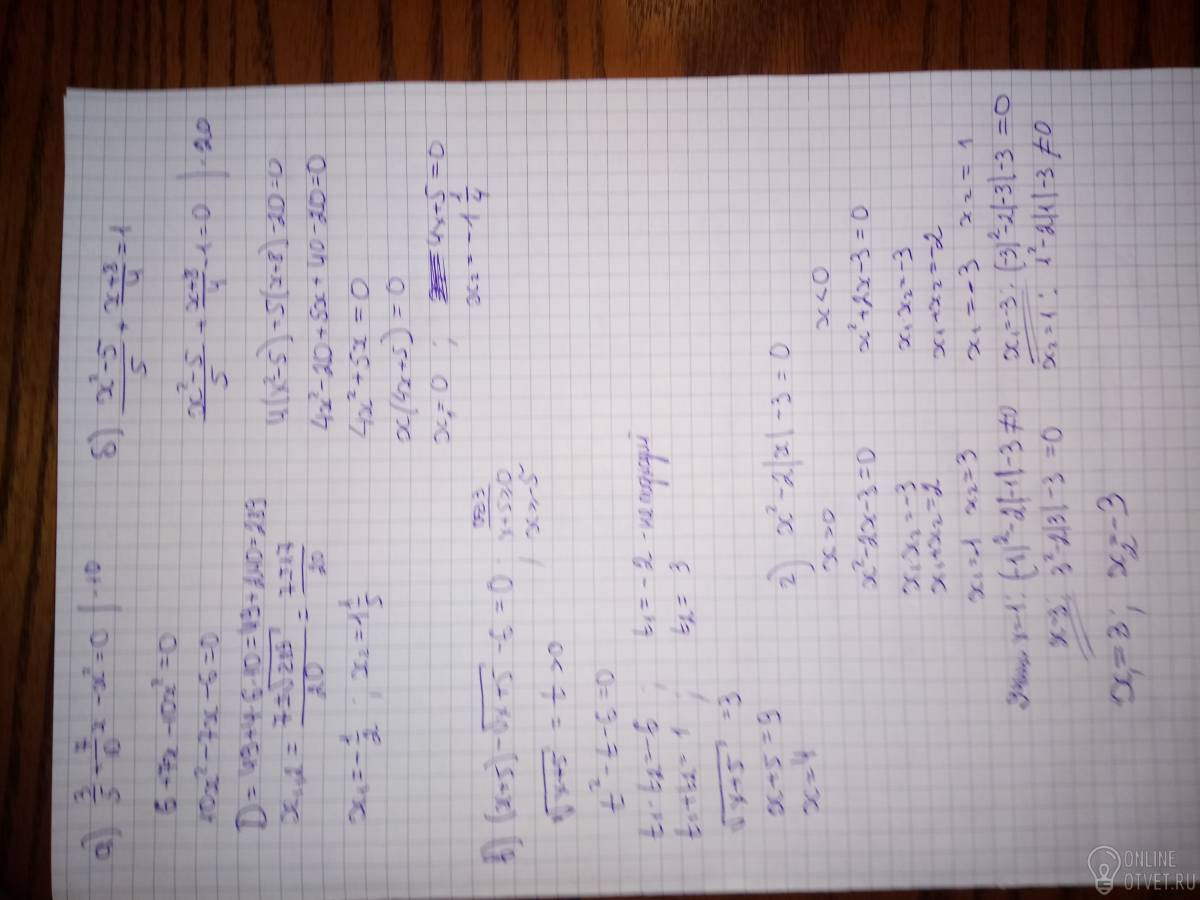 а) 3/5 + 7/10 x - x² = 0 | · 10
6 + 7x - 10x² = 0
10x² - 7x - 6 = 0
D = 49 + 4 · 6 · 10 = 49 + 240 = 289
x₁,₂ = (7 ± √289)/20 = (7 ± 17)/20
x₁ = -1/2 ; x₂ = 1 1/5
б) (x² - 5)/5 + (x + 8)/4 = 1
(x² - 5)/5 + (x + 8)/4 - 1 = 0 | · 20
4(x² - 5) = 5(x + 8) - 20 = 0
4x² - 20 + 5x + 40 - 20 = 0
4x² + 5x = 0
x(4x + 5) = 0
x₁ = 0 ; 4x + 5 = 0
x₂ = -1 1/4
в) (x + 5) - √x + 5 - 6 = 0 ; x + 5 ≥ 0
x ≥ -5
√x + 5 = t > 0
t² - t - 6 = 0
t₁ · t₂ = -6 ; t₁ = -2 - не подходит
t₁ + t₂ = 1 ; t₂ = 3
√x + 5 = 3
x + 5 = 9
x = 4
г) x² - 2|x| - 3 = 0
x > 0
x² - 2x - 3 = 0
x₁x₂ = -3
x₁ + x₂ = 2
x₁ = -1 x₂ = 3
x = -1 : (-1)² - 2|-1| - 3 ≠ 0
x = 3 ; 3² - 2|3| - 3 = 0
x < 0
x² + 2x - 3 = 0
x₁x₂ = -3
x₁ + x₂ = -2
x₁ = -3 x₂ = 1
x₁ = -3 ; (-3)² - 2|-3| - 3 = 0
x₂ = 1 : 1² - 2|1| - 3 ≠ 0
x₁ = 3 ; x₂ = -3
ONLINE
OTVET.RU